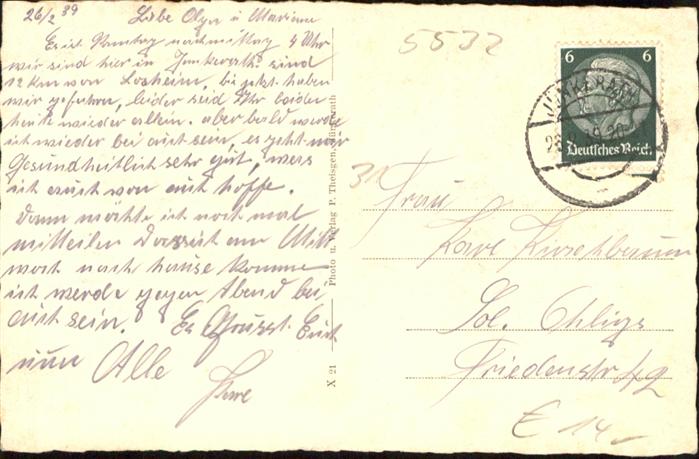 26/2 39 Liebe Olga u Mariane
Es ist Sonntag nachmittag 4 Uhr
wir sind hier in Jünkerath sind
12 km von Losheim, bis jetzt haben
wir gefahren, leider seid Ihr beiden
heute wieder allein. aber bald werde
ich wieder bei euch sein, es geht mir
Gesundheitlich sehr gut, was
ich auch von euch hoffe.
Dann möchte ich noch mal
mitteilen dass ich am Mitt
woch nach hause komme
ich werde gegen Abend bei
euch sein. Es Grüsst Euch
nun Alle
Photo u. Verlag P. Theisgen, Jünkerath
X 21
5532
6 6
Deutsches Reich
JÜNKERATH
31
Frau
Karl Kirschbaum
Sol. Ohligs
Friedenstr 42
€ 14,-